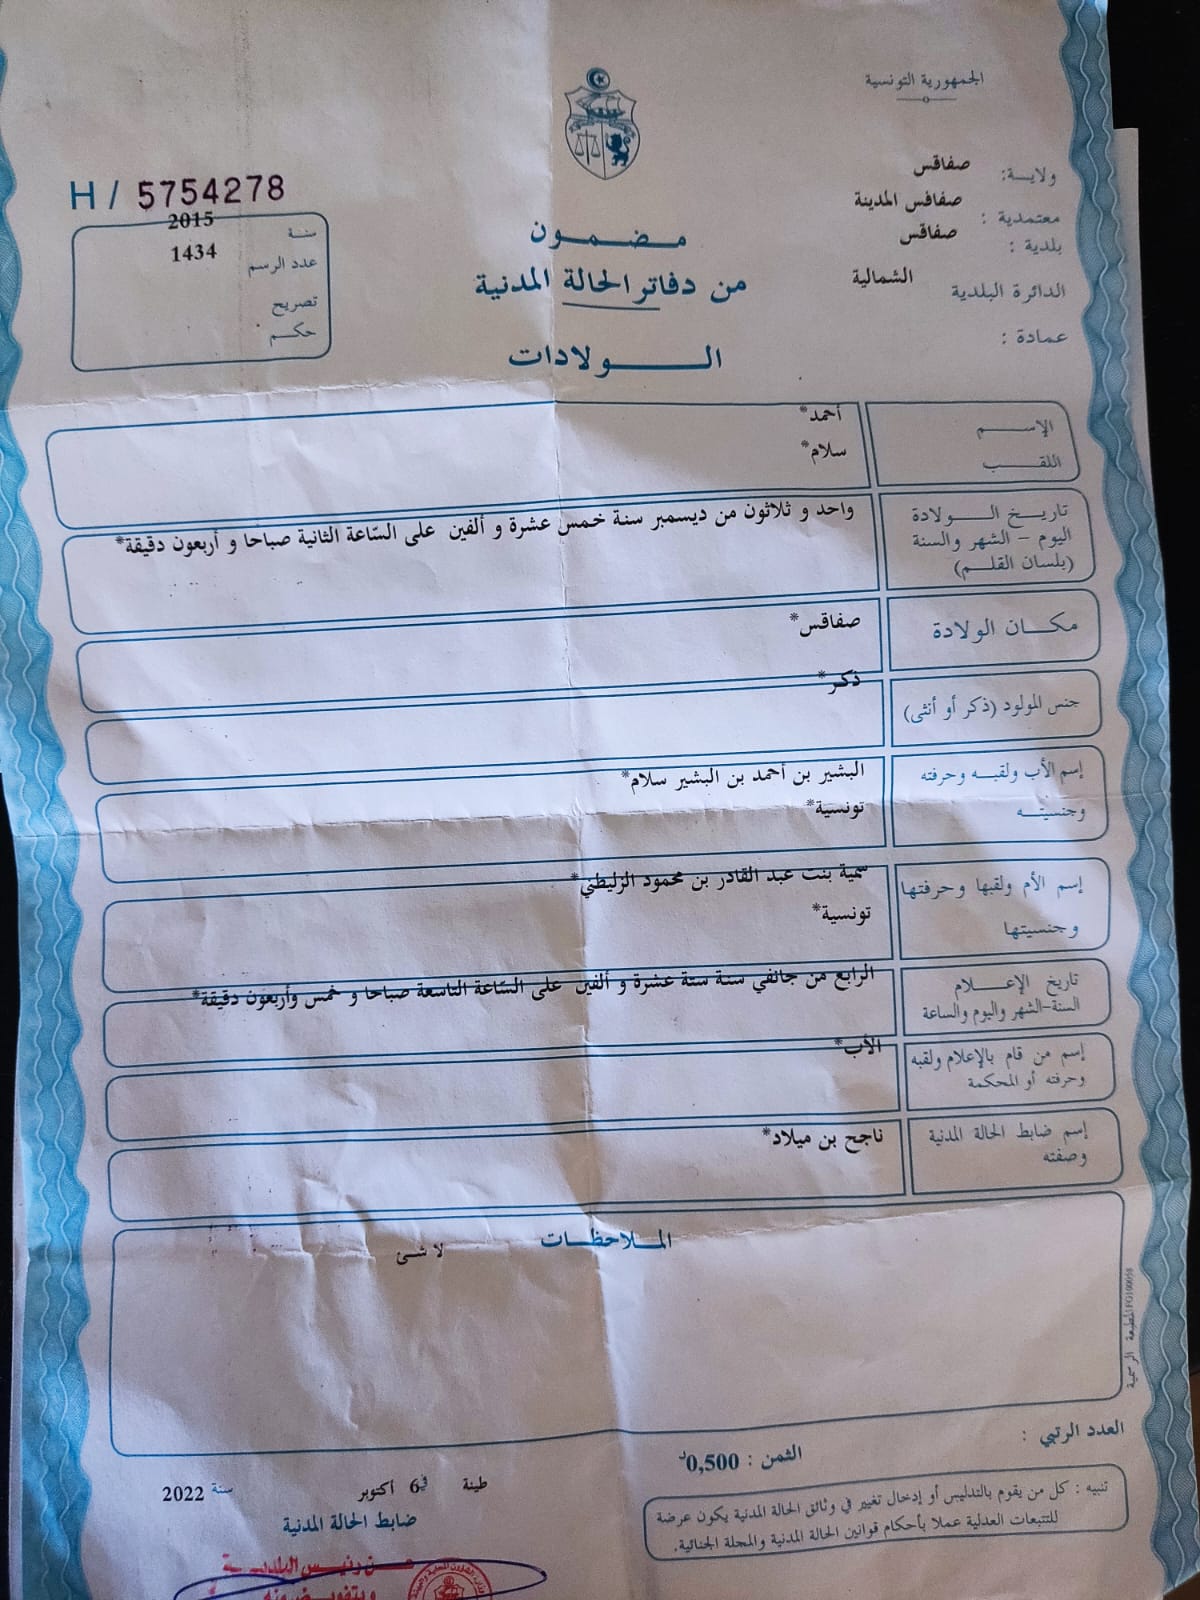 الجمهورية التونسية
ولاية: صفاقس
معتمدية : صفاقس المدينة
بلدية : صفاقس
الدائرة البلدية الشمالية
عمادة :
H / 5754278
سنة 2015
عدد الرسم 1434
تصريح
حكم
مضمون
من دفاتر الحالة المدنية
الولادات
الإسم أحمد*
اللقب سلام*
تاريخ الولادة
اليوم - الشهر والسنة
(بلسان القلم)
واحد و ثلاثون من ديسمبر سنة خمس عشرة و ألفين على السّاعة الثانية صباحا و أربعون دقيقة*
مكان الولادة صفاقس*
جنس المولود (ذكر أو أنثى) ذكر*
إسم الأب ولقبه وحرفته البشير بن أحمد بن البشير سلام*
وجنسيته تونسية*
إسم الأم ولقبها وحرفتها سمية بنت عبد القادر بن محمود الزليطني*
وجنسيتها تونسية*
تاريخ الإعلام
السنة-الشهر واليوم والساعة
الرابع من جانفي سنة ستة عشرة و ألفين على السّاعة التاسعة صباحا و خمس وأربعون دقيقة*
إسم من قام بالإعلام ولقبه
وحرفته أو المحكمة
الأب*
إسم ضابط الحالة المدنية
وصفته
ناجح بن ميلاد*
الملاحظات
لا شئ
المطبعة الرسمية
العدد الرتبي :
الثمن : 0,500د
تنبيه : كل من يقوم بالتدليس أو إدخال تغيير في وثائق الحالة المدنية يكون عرضة
للتتبعات العدلية عملا بأحكام قوانين الحالة المدنية والمجلة الجنائية.
طينة في 6 أكتوبر سنة 2022
ضابط الحالة المدنية
عن رئيس البلدية
وبتفويض منه